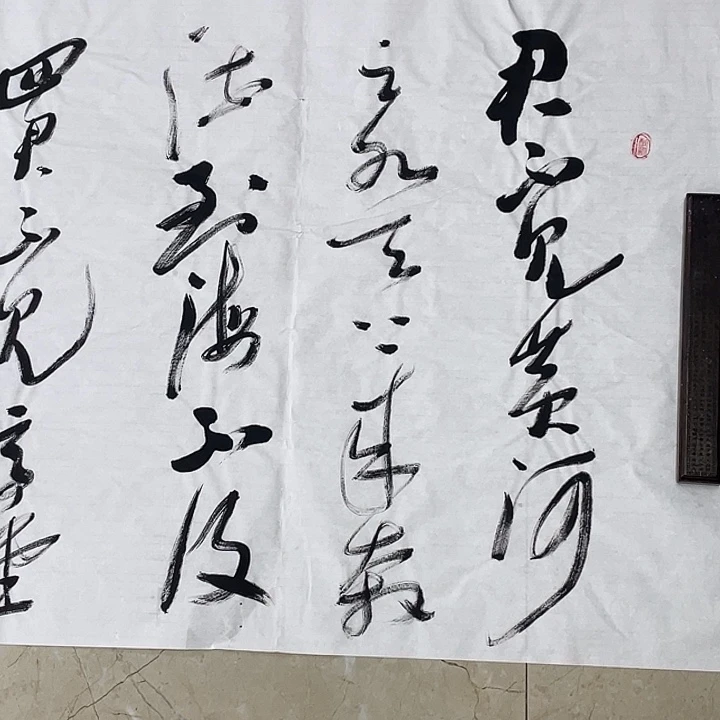 君不見黄河
之水天上来奔
流到海不復
回君不見高堂